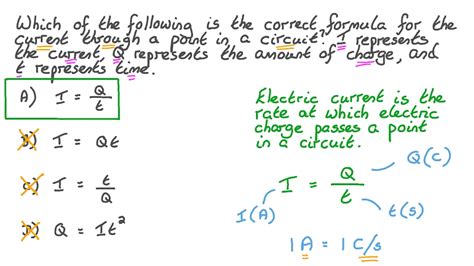 Which of the following is the correct formula for the
current through a point in a circuit? I represents
the current, Q represents the amount of charge, and
t represents time.
A) I = Q/t
B) I = Qt
C) I = t/Q
D) Q = It²
Electric current is the
rate at which electric
charge passes a point
in a circuit.
Q(C)
I = Q/t
I(A)
t(s)
1A = 1C/s